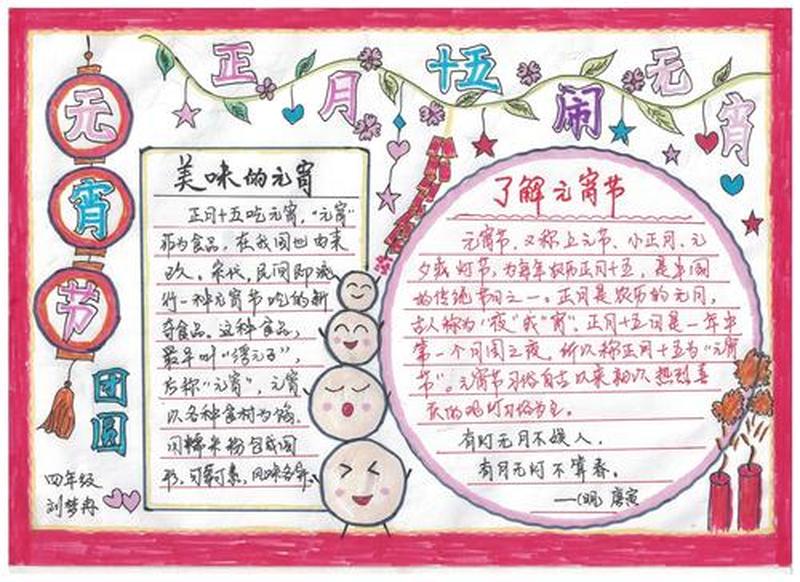 正月十五闹元宵
元宵节
团圆
四年级
刘梦冉
美味的元宵
正月十五吃元宵,“元宵”
作为食品,在我国也由来
已久。宋代,民间即流
行一种元宵节吃的新
奇食品。这种食品,
最早叫“浮元子”,
后称“元宵”,元宵
以各种食材为馅,
用糯米粉包成圆
形,可荤可素,风味各异。
了解元宵节
元宵节,又称上元节、小正月、元
夕或灯节,为每年农历正月十五,是中国
的传统节日之一。正月是农历的元月,
古人称为“夜”或“宵”,正月十五日是一年中
第一个月圆之夜,所以称正月十五为“元宵
节”。元宵节习俗自古以来就以热烈喜
庆的观灯习俗为主。
有灯无月不娱人,
有月无灯不算春。
——(明)唐寅